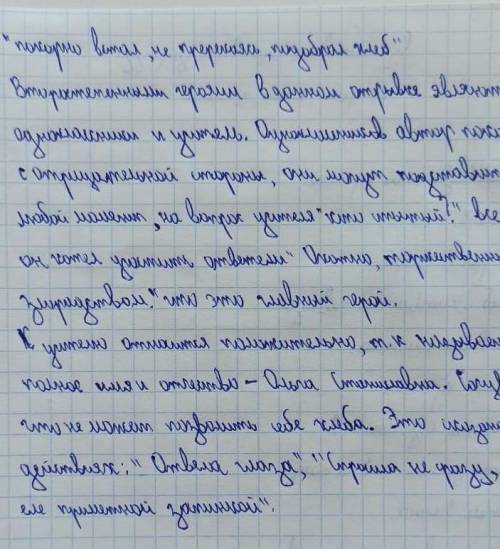 "покорно встал, не пререкаясь, подобрал хлеб"
Второстепенными героями в данном отрывке являют
одноклассники и учитель. Одноклассников автор пока
с отрицательной стороны, они могут
любой момент, на вопрос учителя "кто пытый?" все
он хотел ответили "Охотно, торжественно
злорадством." что это главный герой.
К учителю относится положительно, т.к
полное имя и отчество - Ольга Станиславна.
что не может позволить себе хлеба. Это
действиях: "Отвела глаза", "Спросила не сразу,
еле приметной запинкой".